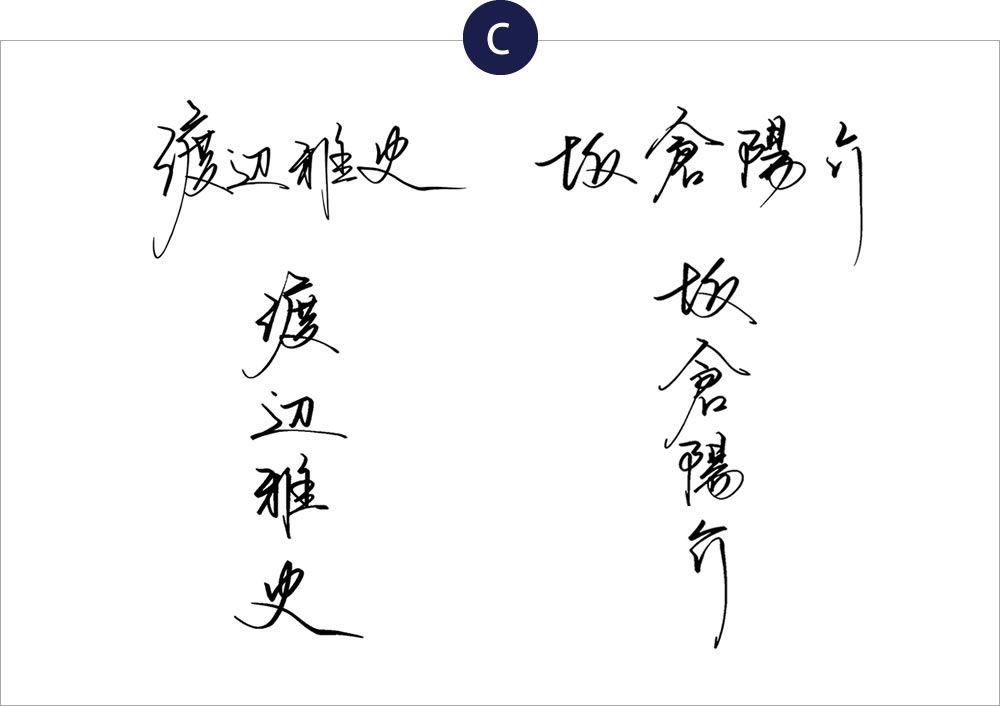 C
渡辺雅史
坂倉陽介
渡辺雅史
坂倉陽介